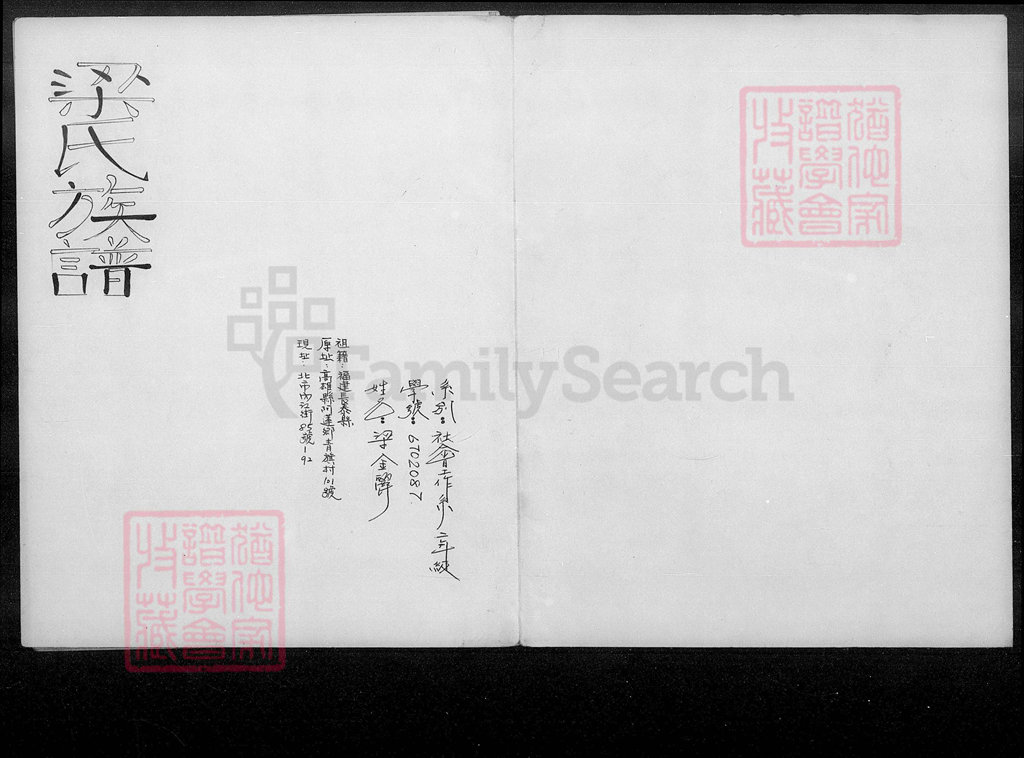 梁氏族譜
系別：社會工作系二年級
學號：6702087
姓名：梁金
祖籍：福建長泰縣
原址：高雄縣阿蓮鄉青旗村101號
現址：北市內江街85號-92
FamilySearch
譜學會
收藏
譜學會
收藏